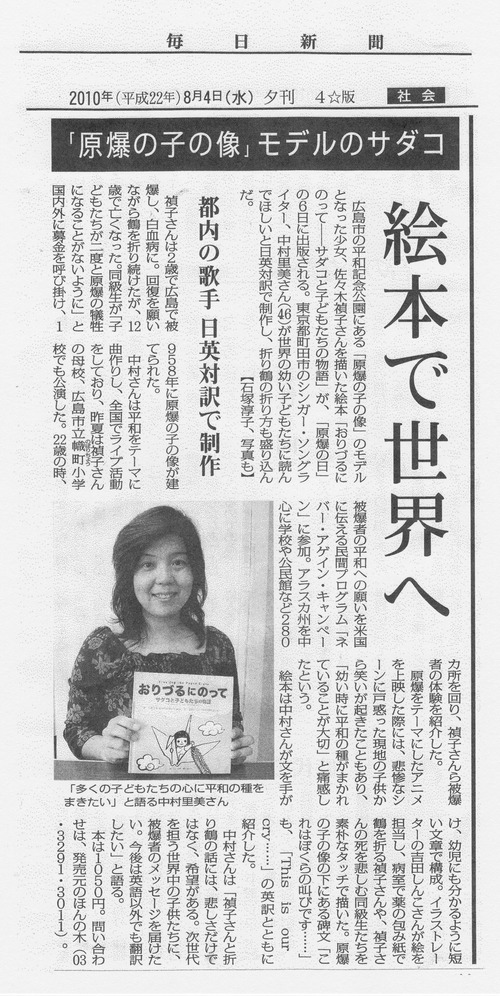 毎日新聞
2010年(平成22年)8月4日(水) 夕刊 4☆版 社会
「原爆の子の像」モデルのサダコ
絵本で世界へ
都内の歌手 日英対訳で制作
広島市の平和記念公園にある「原爆の子の像」のモデル
となった少女、佐々木禎子さんを描いた絵本「おりづるに
のって――サダコと子どもたちの物語」が、「原爆の日」
の6日に出版される。東京都町田市のシンガー・ソングラ
イター、中村里美さん(46)が世界の幼い子どもたちに読ん
でほしいと日英対訳で制作し、折り鶴の折り方も盛り込ん
だ。
【石塚淳子、写真も】
禎子さんは2歳で広島で被
爆し、白血病に。回復を願い
ながら鶴を折り続けたが、12
歳で亡くなった。同級生が「子
どもたちが二度と原爆の犠牲
になることがないように」と
国内外に募金を呼び掛け、1
958年に原爆の子の像が建
てられた。
中村さんは平和をテーマに
曲作りし、全国でライブ活動
をしており、昨夏は禎子さん
の母校、広島市立幟町小学
校でも公演した。22歳の時、
被爆者の平和への願いを米国
に伝える民間プログラム「ネ
バー・アゲイン・キャンペー
ン」に参加。アラスカ州を中
心に学校や公民館など280
カ所を回り、禎子さんら被爆
者の体験を紹介した。
原爆をテーマにしたアニメ
を上映した際には、悲惨なシ
ーンに戸惑った現地の子供か
ら笑いが起きたこともあり、
「幼い時に平和の種がまかれ
ていることが大切」と痛感し
たという。
絵本は中村さんが文を手が
け、幼児にも分かるように短
い文章で構成。イラストレー
ターの吉田しんこさんが絵を
担当し、病室で薬の包み紙で
鶴を折る禎子さんや、禎子さ
んの死を悲しむ同級生たちを
素朴なタッチで描いた。原爆
の子の像の下にある碑文「こ
れはぼくらの叫びです……」
も、「This is our
cry……」の英訳とともに
紹介した。
中村さんは「禎子さんと折
り鶴の話には、悲しさだけで
はなく、希望がある。次世代
を担う世界中の子供たちに、
被爆者のメッセージを届けた
い。今後は英語以外でも翻訳
したい」と語る。
本は1050円。問い合わ
せは、発売元のほんの木(03
・3291・3011)。
おりづるにのって
サダコと子どもたちの物語
「多くの子どもたちの心に平和の種を
まきたい」と語る中村里美さん